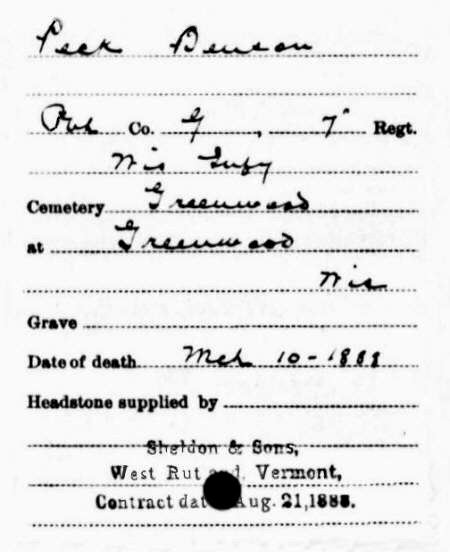 Peck Benson
Pvt Co. G, 7" Regt.
Wis Infy
Cemetery Greenwood
at Greenwood
Wis
Grave
Date of death Mch 10-1888
Headstone supplied by
Sheldon & Sons,
West Rut and, Vermont,
Contract dat Aug. 21, 1888.